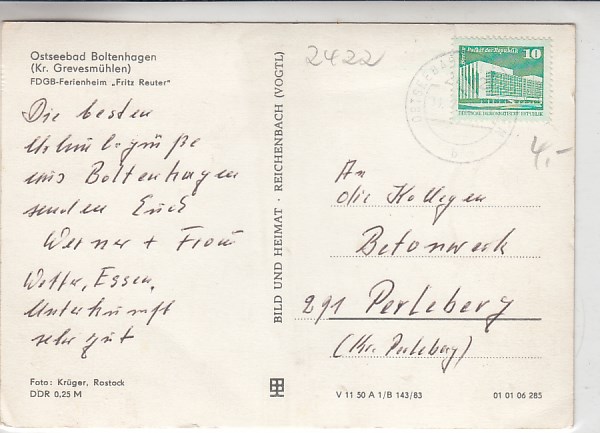 Ostseebad Boltenhagen
(Kr. Grevesmühlen)
FDGB-Ferienheim „Fritz Reuter"
Die besten
Urlaubsgrüße
aus Boltenhagen
senden Euch
Werner + Frau
Wetter, Essen,
Unterkunft
sehr gut
Foto: Krüger, Rostock
DDR 0,25 M
BILD UND HEIMAT · REICHENBACH (VOGTL)
2422
Palast der Republik
10
DEUTSCHE DEMOKRATISCHE REPUBLIK
OSTSEEBAD
b
4,-
An
die Kollegen
Betonwerk
291 Perleberg
(Kr. Perleberg)
V 11 50 A 1/B 143/83
01 01 06 285